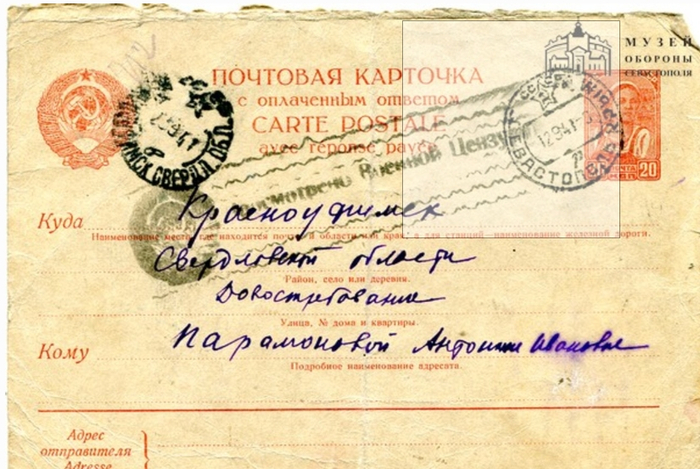 МУЗЕЙ
ОБОРОНЫ
СЕВАСТОПОЛЯ
ПОЧТОВАЯ КАРТОЧКА
с оплаченным ответом
CARTE POSTALE
avec réponse payée
СВЕРДЛ. ОБЛ.
Просмотрено Военной Цензурой
СЕВАСТОПОЛЬ
12941
20
Куда
Красноуфимск
Наименование места, где находится почта, и области или края, а для станций—наименование железной дороги.
Свердловской области
Район, село или деревня.
Довостребование
Улица, № дома и квартиры.
Кому
Парамоновой Антонине Ивановне
Подробное наименование адресата.
Адрес
отправителя
Adresse